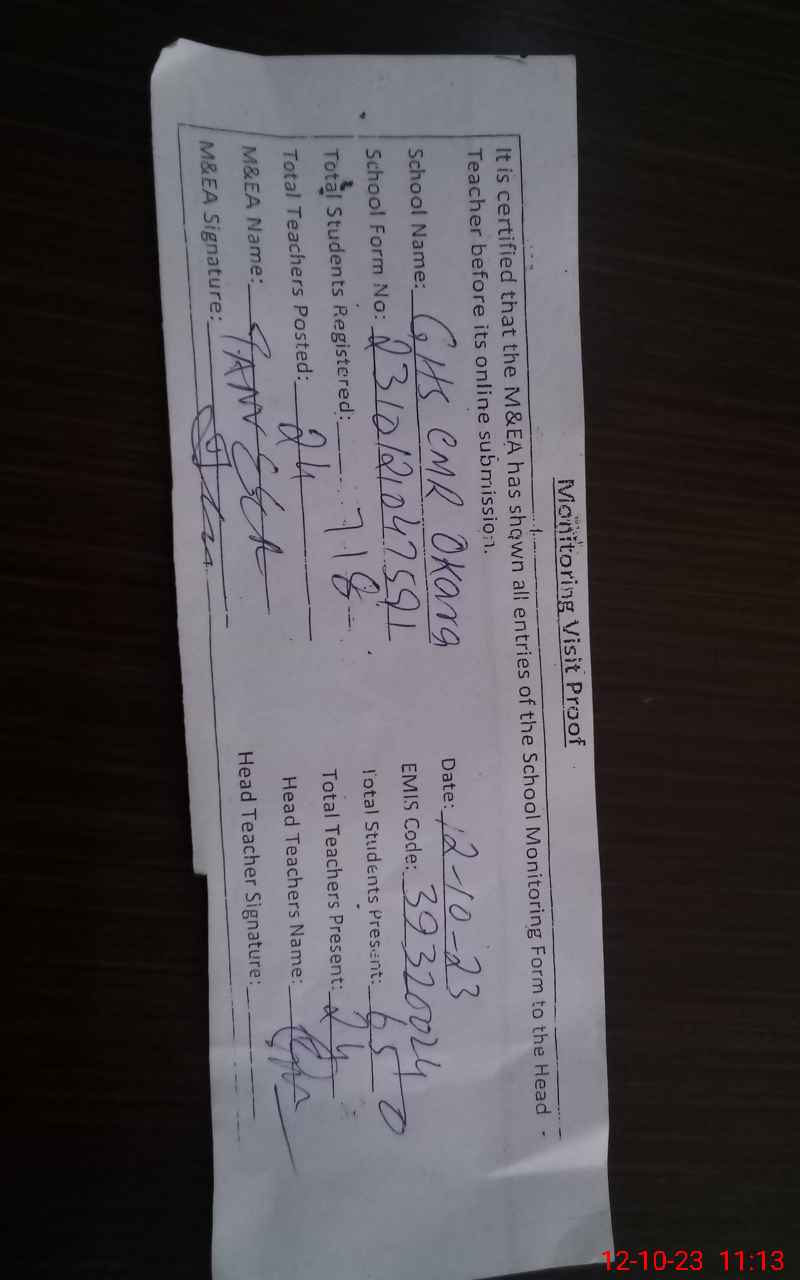 Monitoring Visit Proof
It is certified that the M&EA has shown all entries of the School Monitoring Form to the Head
Teacher before its online submission.
School Name: GHS CMR Okara Date: 12-10-23
School Form No: 2310121047591 EMIS Code: 39320024
Total Students Registered: 718 Total Students Present: 650
Total Teachers Posted: 24 Total Teachers Present: 24
M&EA Name: Head Teachers Name:
M&EA Signature: Head Teacher Signature:
12-10-23 11:13